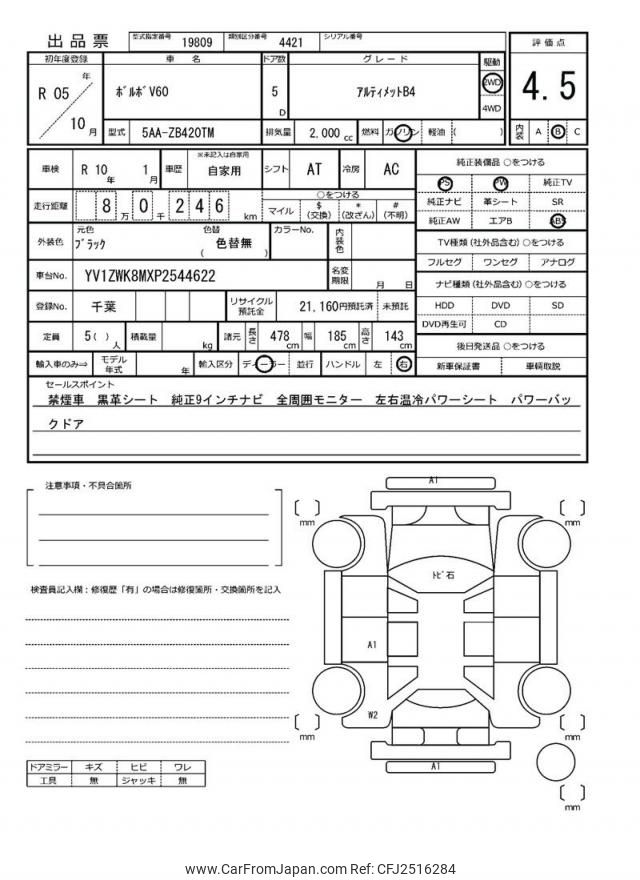 出品票 型式指定番号 19809 類別区分番号 4421 シリアル番号
初年度登録 車名 ドア数 グレード 駆動 評価点
R 05 年 10 月 ﾎﾞﾙﾎﾞV60 5 D ｱﾙﾃｨﾒｯﾄB4 2WD 4WD 4.5
型式 5AA-ZB420TM 排気量 2,000 cc 燃料 ガソリン 軽油 ( ) 内装 A B C
車検 R 10 年 1 月 車歴 ※未記入は自家用 自家用 シフト AT 冷房 AC
純正装備品 ○をつける
PS PW 純正TV
純正ナビ 革シート SR
純正AW エアB ABS
走行距離 8 万 0 千 2 4 6 km ○をつける
マイル $ (交換) * (改ざん) # (不明)
外装色 元色 ﾌﾞﾗｯｸ 色替 ( 色替無 ) カラーNo. 内装色
TV種類 (社外品含む) ○をつける
フルセグ ワンセグ アナログ
車台No. YV1ZWK8MXP2544622 名変期限 月 日
ナビ種類 (社外品含む) ○をつける
HDD DVD SD
DVD再生可 CD
登録No. 千葉 リサイクル預託金 21,160円預託済 未預託
定員 5 ( ) 人 積載量 kg 諸元 長さ 478 cm 幅 185 cm 高さ 143 cm
後日発送品 ○をつける
新車保証書 車輌取説
輸入車のみ⇒ モデル年式 年 輸入区分 ディーラー 並行 ハンドル 左 右
セールスポイント
禁煙車 黒革シート 純正9インチナビ 全周囲モニター 左右温冷パワーシート パワーバッ
クドア
注意事項・不具合箇所
検査員記入欄：修復歴「有」の場合は修復箇所・交換箇所を記入
A1
[ ] mm
[ ] mm
ﾄﾋﾞ石
A1
W2
[ ] mm
[ ] mm
A1
[ ] mm
ドアミラー キズ ヒビ ワレ
工具 無 ジャッキ 無
www.CarFromJapan.com Ref: CFJ2516284